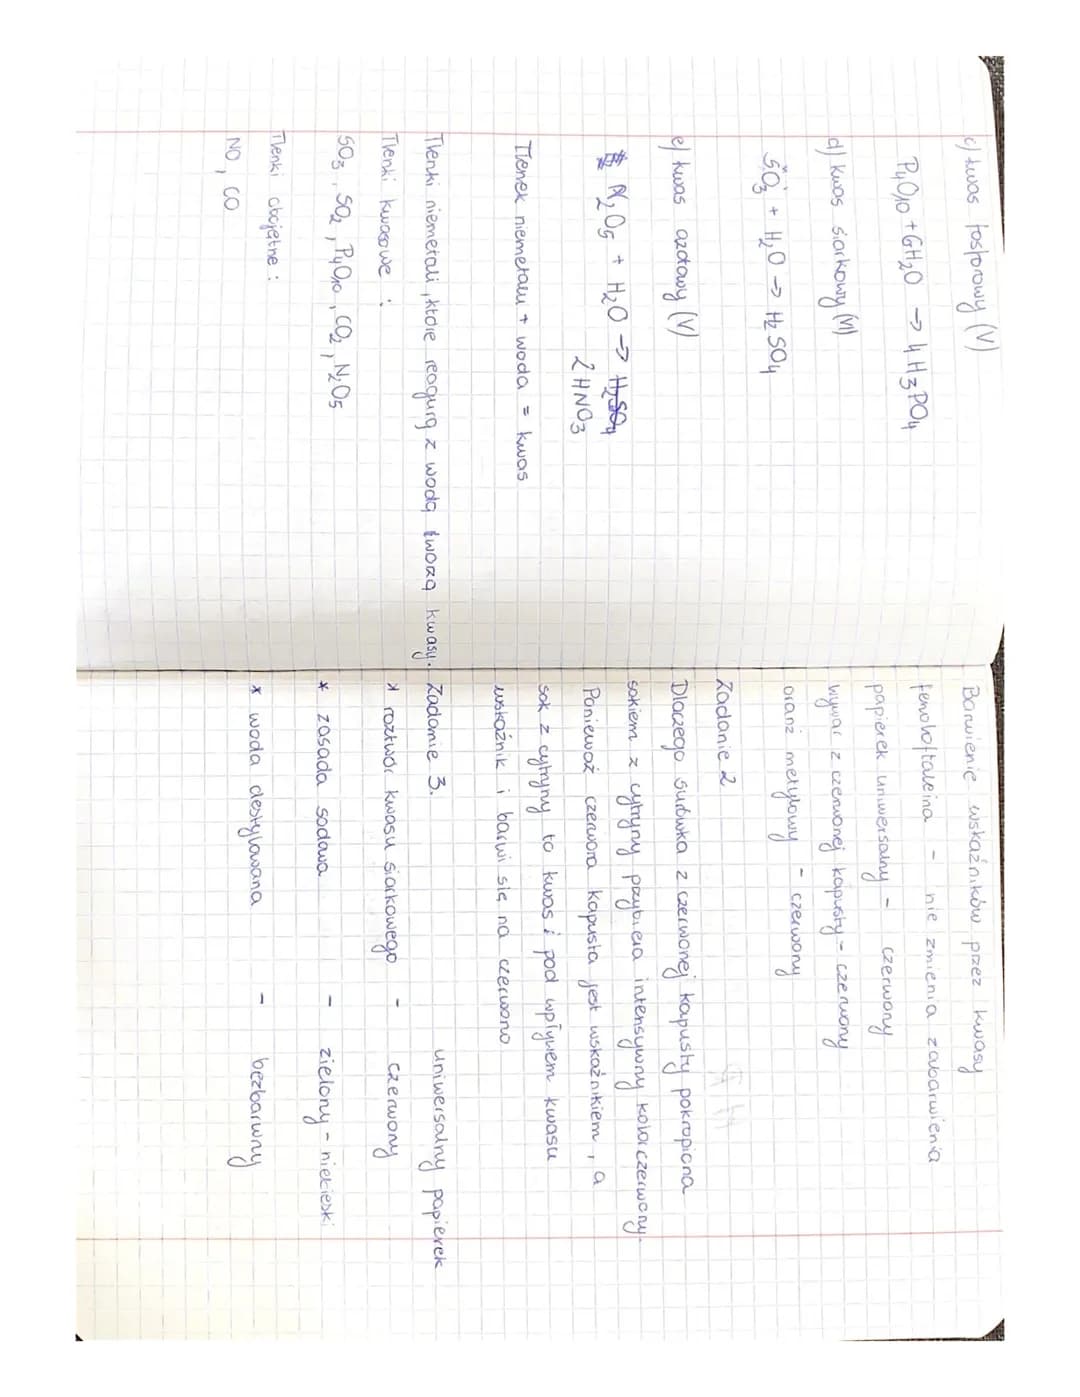 c) kwas fosforowy (V)
P4O10 + 6H2O → 4H3PO4
d) kwas siarkowy (VI)
SO3 + H2O → H2SO4
e) kwas azotowy (V)
N2O5 + H2O → H2SO4
2HNO3
Tlenek niemetalu + woda = kwas
Tlenki niemetali, które reagują z wodą tworzą kwasy.
Tlenki kwasowe :
SO3, SO2, P4O10, CO2, N2O5
Tlenki obojętne :
NO, CO
Barwienie wskaźników przez kwasy
fenoloftaleina - nie zmienia zabarwienia
papierek uniwersalny - czerwony
wywar z czerwonej kapusty - czerwony
oranż metylowy - czerwony
Zadanie 2
Dlaczego surówka z czerwonej kapusty pokropiona
sokiem z cytryny przybiera intensywny kolor czerwony.
Ponieważ czerwona kapusta jest wskaźnikiem, a
sok z cytryny to kwas i pod wpływem kwasu
wskaźnik i barwi się na czerwono
Zadanie 3.
uniwersalny papierek
* roztwór kwasu siarkowego - czerwony
* zasada sodowa - zielony - niebieski
* woda destylowana - bezbarwny